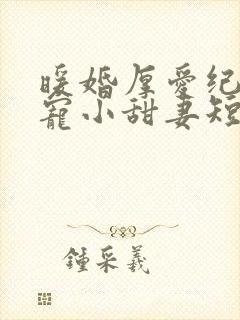 暖婚厚爱纪
宠小甜妻短
锺采羲